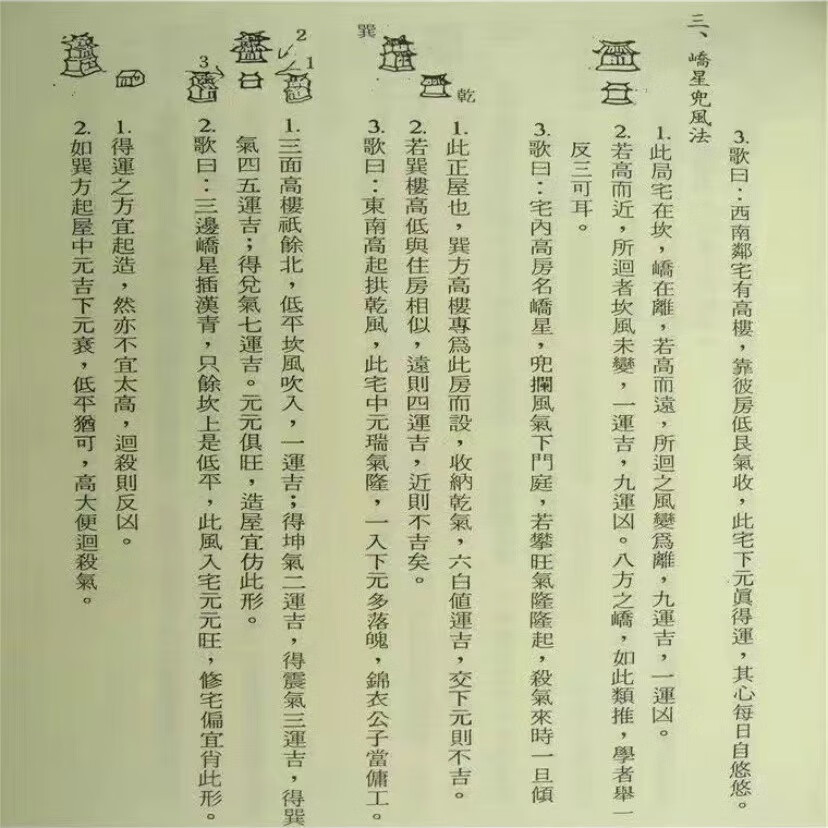 3.歌曰：西南鄰宅有高樓，靠彼房低艮氣收，此宅下元眞得運，其心每日自悠悠。
三、嶠星兜風法
1.此局宅在坎，嶠在離，若高而遠，所迴之風變爲離，九運吉，一運凶。
2.若高而近，所迴者坎風未變，一運吉，九運凶。八方之嶠，如此類推，學者舉一
反三可耳。
3.歌曰：宅內高房名嶠星，兜攔風氣下門庭，若攀旺氣隆隆起，殺氣來時一旦傾
乾
巽
1.此正屋也，巽方高樓專爲此房而設，收納乾氣，六白値運吉，交下元則不吉。
2.若巽樓高低與住房相似，遠則四運吉，近則不吉矣。
3.歌曰：東南高起拱乾風，此宅中元瑞氣隆，一入下元多落魄，錦衣公子當傭工。
1
2
3
1.三面高樓祇餘北，低平坎風吹入，一運吉；得坤氣二運吉，得震氣三運吉，得巽
氣四五運吉；得兌氣七運吉。元元俱旺，造屋宜仿此形。
2.歌曰：三邊嶠星插漢青，只餘坎上是低平，此風入宅元元旺，修宅偏宜肖此形。
1.得運之方宜起造，然亦不宜太高，迴殺則反凶。
2.如巽方起屋中元吉下元衰，低平猶可，高大便迴殺氣。